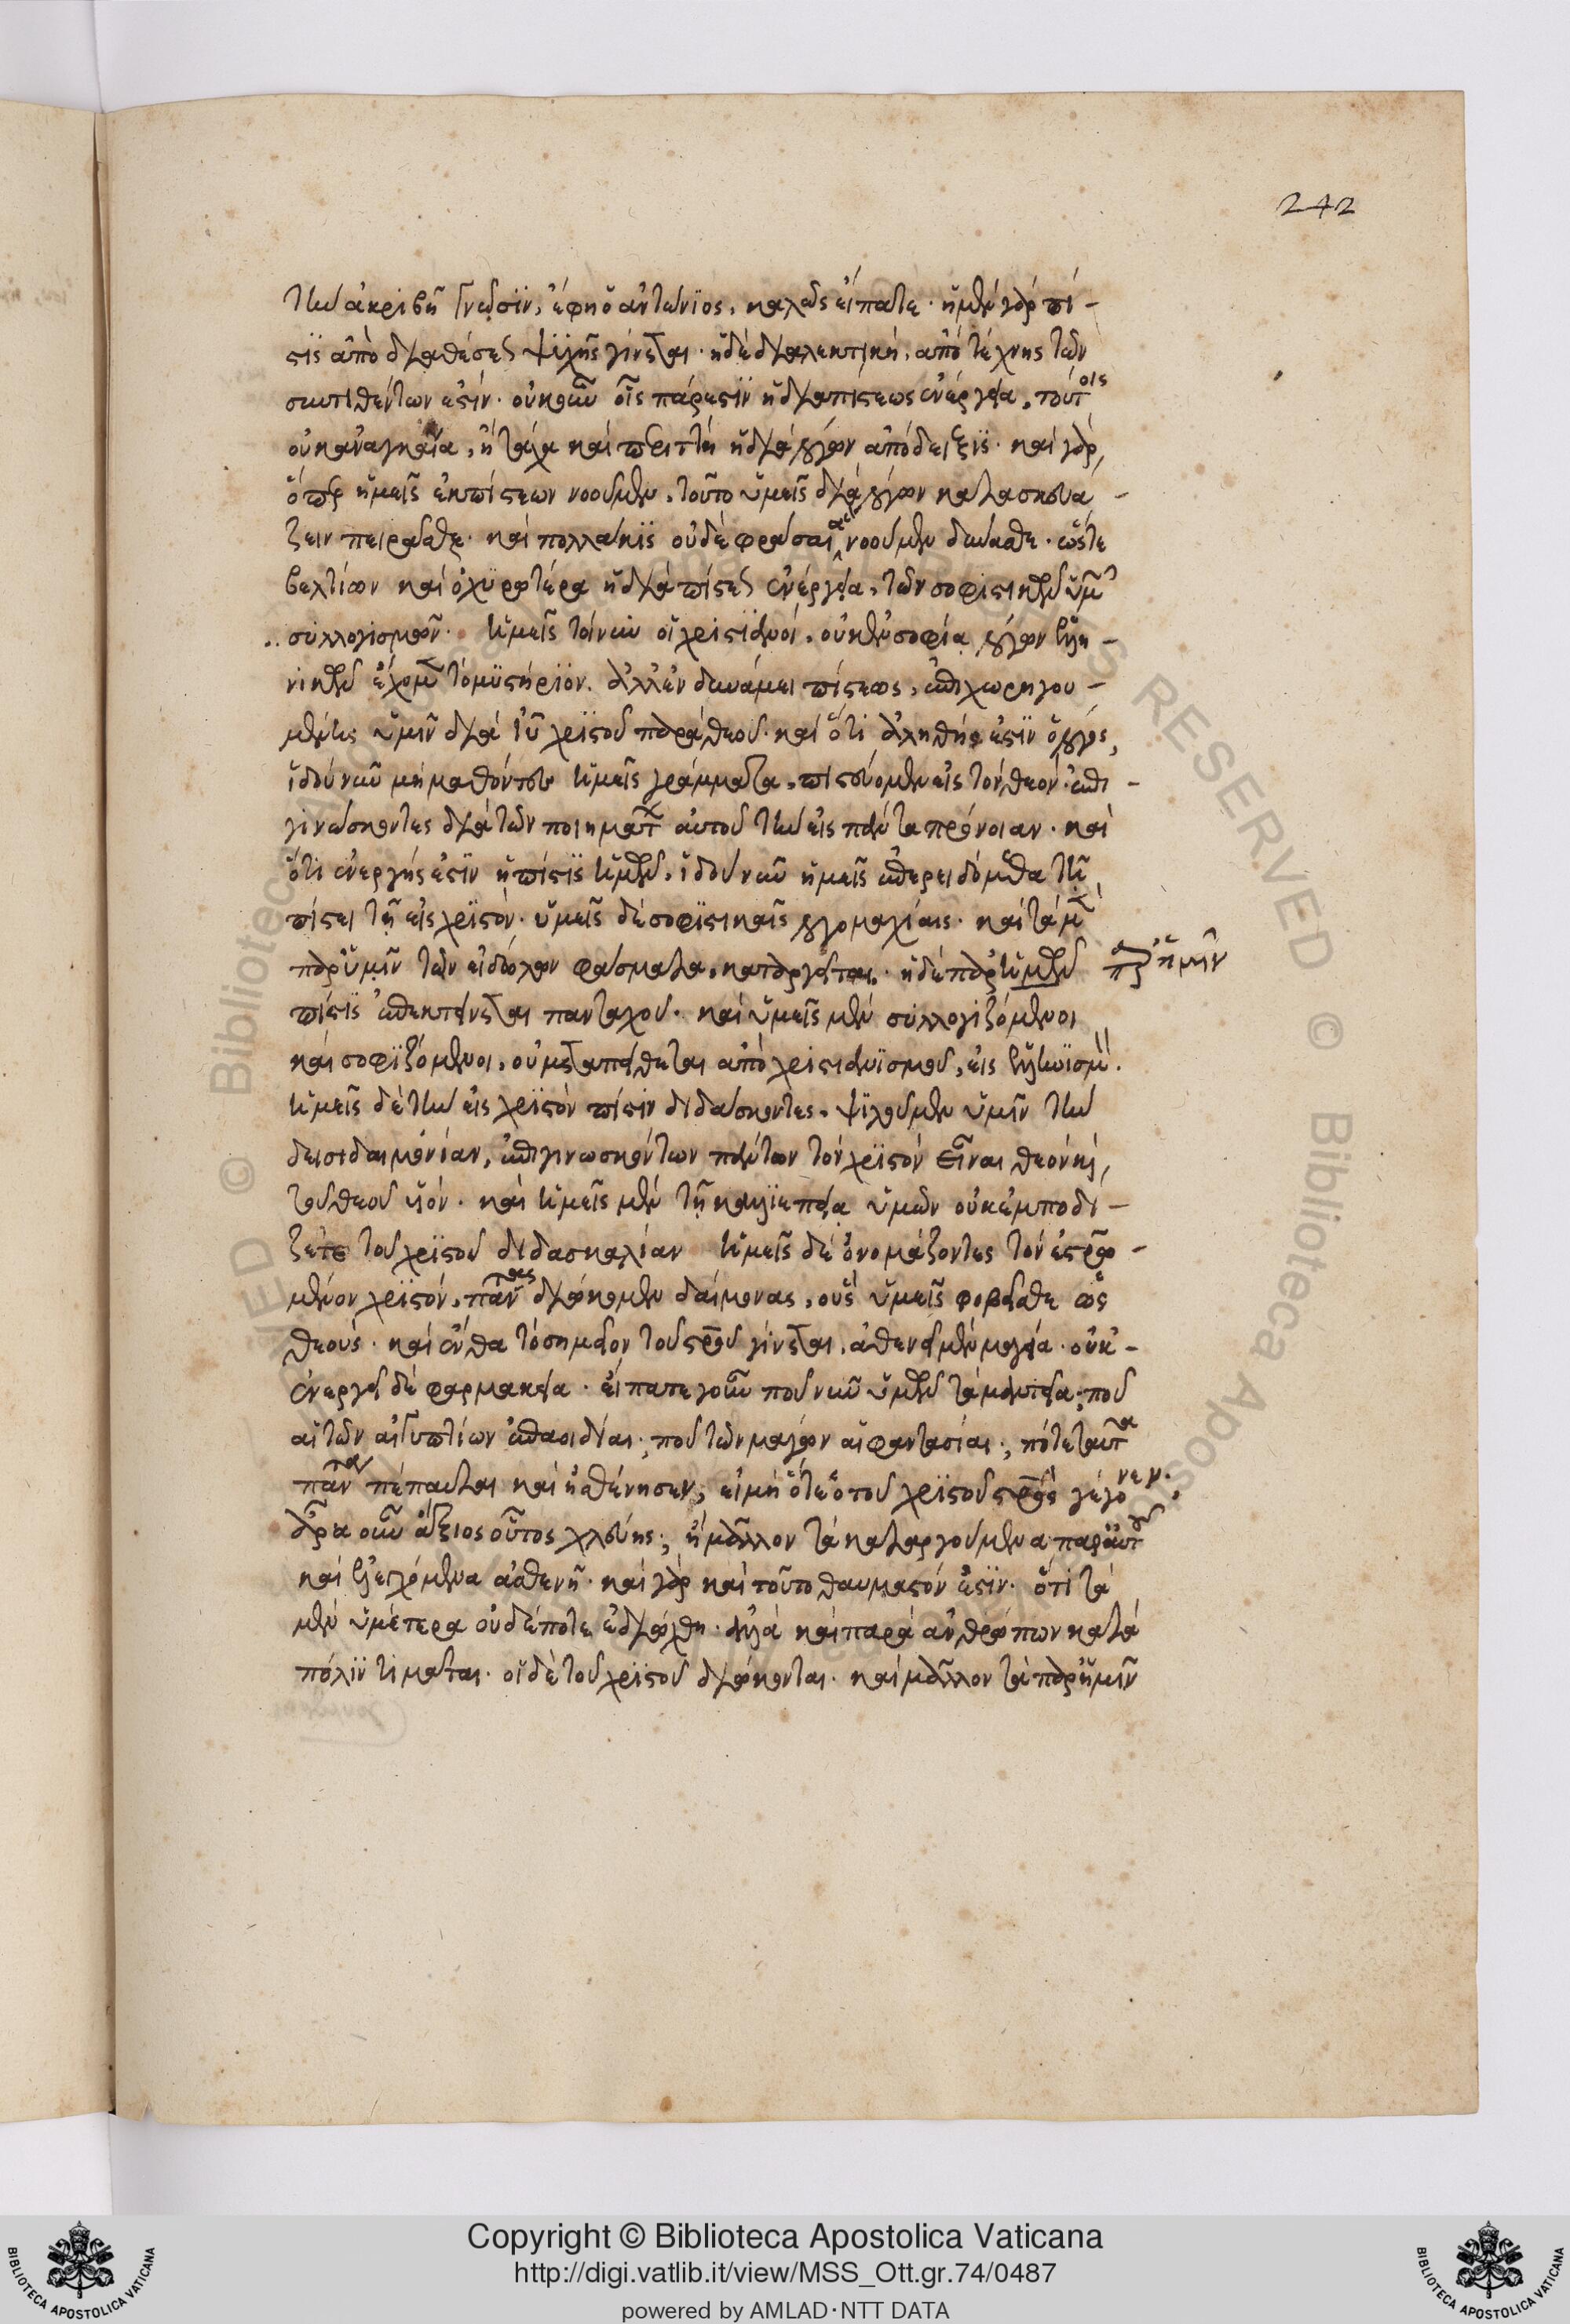 242
τὴν ἀκριβῆ γνῶσιν, ἔφη ὁ ἀντώνιος, καλῶς εἴπατε· ἡ μὲν γὰρ πί-
στις ἀπὸ διαθέσεως ψυχῆς γίνεται· ἡ δὲ διαλεκτικὴ, ἀπὸ τέχνης τῶν
συντιθέντων ἐστίν· οὐκοῦν οἷς πάρεστιν ἡ διὰ πίστεως ἐνέργεια, τούτοις
οὐκ ἀναγκαία, ἢ τάχα καὶ περιττὴ ἡ διὰ λόγων ἀπόδειξις· καὶ γὰρ,
ὅπερ ἡμεῖς ἐκ πίστεων νοοῦμεν, τοῦτο ὑμεῖς διὰ λόγων κατασκευά-
ζειν πειρᾶσθε· καὶ πολλάκις οὐδὲ φράσαι ἃ νοοῦμεν δύνασθε· ὥστε
βελτίων καὶ ὀχυρωτέρα ἡ διὰ πίστεως ἐνέργεια, τῶν σοφιστικῶν ὑμῶν
συλλογισμῶν· ἡμεῖς τοίνυν οἱ χριστιανοὶ, οὐκ ἐν σοφίᾳ λόγων ἑλλη-
νικῶν ἔχομεν τὸ μυστήριον. ἀλλ' ἐν δυνάμει πίστεως, ἐπιχωρηγου-
μένης ὑμῖν διὰ ἰυ χριστοῦ παρὰ θεοῦ· καὶ ὅτι ἀληθής ἐστιν ὁ λόγος,
ἰδοὺ νῦν μὴ μαθόντες ἡμεῖς γράμματα, πιστεύομεν εἰς τὸν θεόν· ἐπι-
γινώσκοντες διὰ τῶν ποιημάτων αὐτοῦ τὴν εἰς πάντα πρόνοιαν· καὶ
ὅτι ἐνεργής ἐστιν ἡ πίστις ἡμῶν, ἰδοὺ νῦν ἡμεῖς ἐπερειδόμεθα τῇ
πίστει τῇ εἰς χριστόν· ὑμεῖς δὲ σοφιστικαῖς λογομαχίαις· καὶ τὰ μὲν
παρ' ὑμῖν τῶν εἰδώλων φάσματα, καταργεῖται. ἡ δὲ παρ' ἡμῶν παρ' ἡμῖν
πίστις ἐπεκτείνεται πανταχοῦ· καὶ ὑμεῖς μὲν συλλογιζόμενοι
καὶ σοφιζόμενοι, οὐ μεταπείθεται ἀπὸ χριστιανισμοῦ, εἰς ἑλληνισμόν.
ἡμεῖς δὲ τὴν εἰς χριστὸν πίστιν διδάσκοντες, ψιλοῦμεν ὑμῖν τὴν
δεισιδαιμονίαν, ἐπιγινωσκόντων πάντων τὸν χριστὸν εἶναι θεὸν καὶ,
τοῦ θεοῦ υἱόν· καὶ ἡμεῖς μὲν τῇ καλλιεπείᾳ ὑμῶν οὐκ ἐμποδί-
ζετε τοῦ χριστοῦ διδασκαλίαν ἡμεῖς δὲ ὀνομάζοντες τὸν ἐσταυρω-
μένον χριστόν, πάντας διώκομεν δαίμονας, οὓς ὑμεῖς φοβεῖσθε ὡς
θεούς· καὶ ἔνθα τὸ σημεῖον τοῦ σταυροῦ γίνεται, ἀσθενεῖ μὲν μαγεία· οὐκ-
ἐνεργεῖ δὲ φαρμακεία· εἴπατε γοῦν ποῦ νῦν ὑμῶν τὰ μαντεῖα; ποῦ
αἱ τῶν αἰγυπτίων ἐπαοιδίαι; ποῦ τῶν μάγων αἱ φαντασίαι; πότε ταῦτα
πάντα πέπαυται καὶ ἠσθένησεν; εἰ μὴ ὅτε ὁ τοῦ χριστοῦ σταυρὸς γέγονεν.
ἆρα οὖν ἄξιος οὗτος χλεύης; ἢ μᾶλλον τὰ καταργούμενα παρ' αὐτοῦ
καὶ ἐλεγχόμενα ἀσθενῆ· καὶ γὰρ καὶ τοῦτο θαυμαστόν ἐστιν· ὅτι τὰ
μὲν ὑμέτερα οὐδέποτε ἐδιώχθη· ἀλλὰ καὶ παρὰ ἀνθρώπων κατὰ
πόλιν τιμᾶται· οἱ δὲ τοῦ χριστοῦ διώκονται· καὶ μᾶλλον τὰ παρ' ἡμῖν
Copyright © Biblioteca Apostolica Vaticana
http://digi.vatlib.it/view/MSS_Ott.gr.74/0487
powered by AMLAD·NTT DATA
BIBLIOTECA APOSTOLICA VATICANA
BIBLIOTECA APOSTOLICA VATICANA